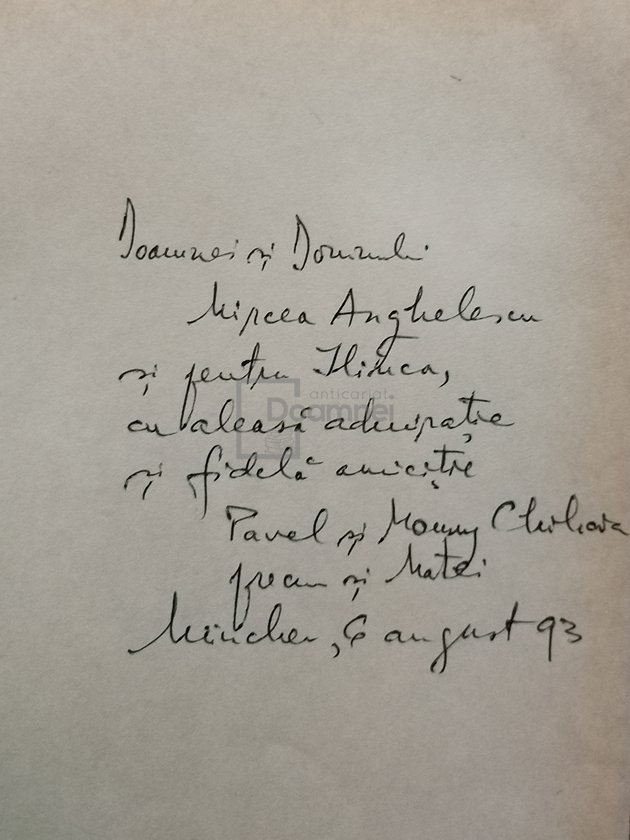 Doamnei și Domnului
Mircea Anghelescu
și pentru Ilinca,
cu aleasă admirație
și fidelă amiciție
Pavel și Mommy Chihaia
precum și Matei
München, 6 august 93
anticariat
Doamnei